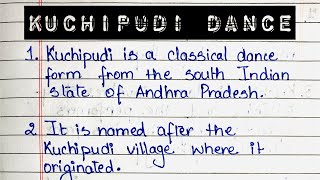 KUCHIPUDI DANCE
1. Kuchipudi is a classical dance
form from the south Indian
state of Andhra Pradesh.
2. It is named after the
Kuchipudi village where it
originated.